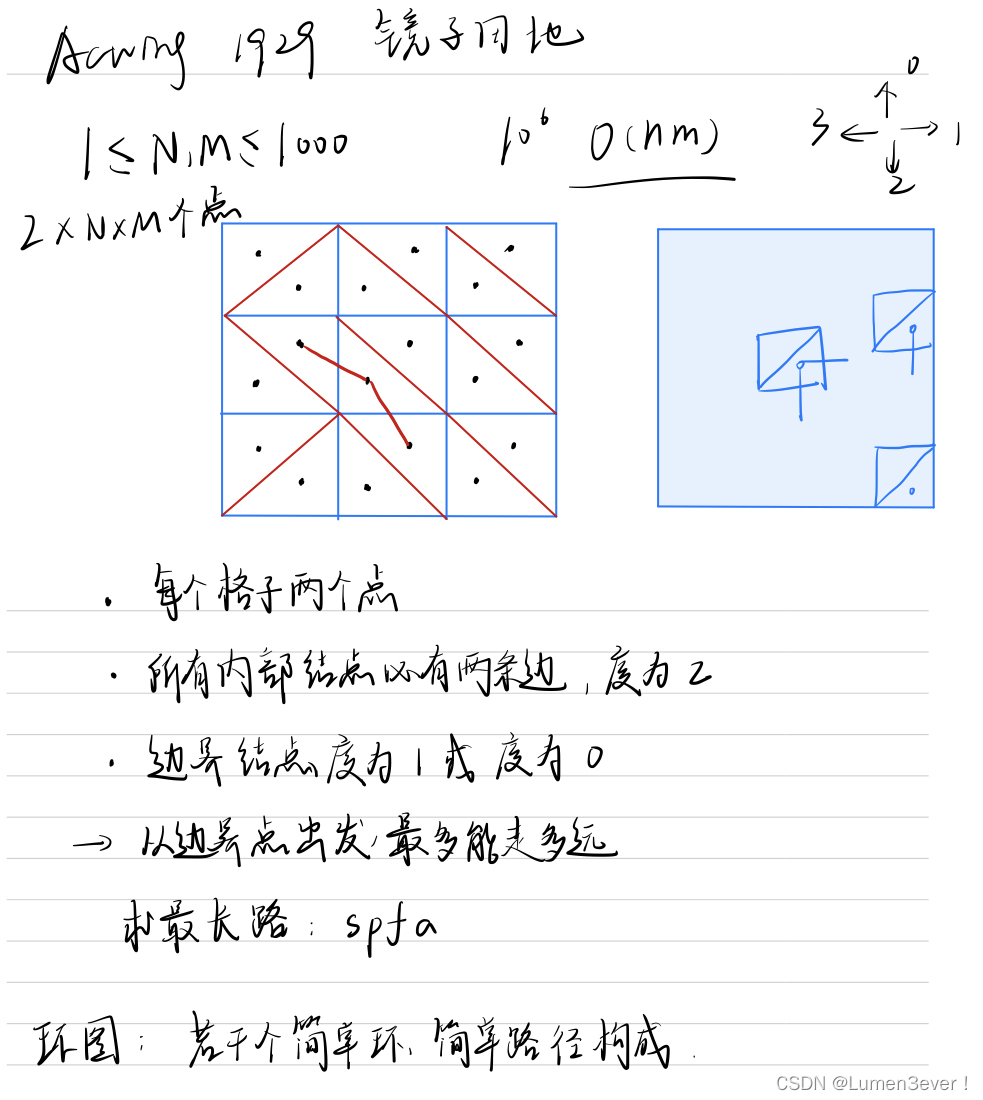 Acwing 1929 镜子田地
1 ≤ N,M ≤ 1000 10^6 O(nm)
0
3 1
2
2×N×M个点
· 每个格子两个点
· 所有内部结点必有两条边,度为2
· 边界结点度为1或度为0
→ 从边界点出发,最多能走多远
求最长路:spfa
环图:若干个简单环、简单路径构成.
CSDN @Lumen3ever!